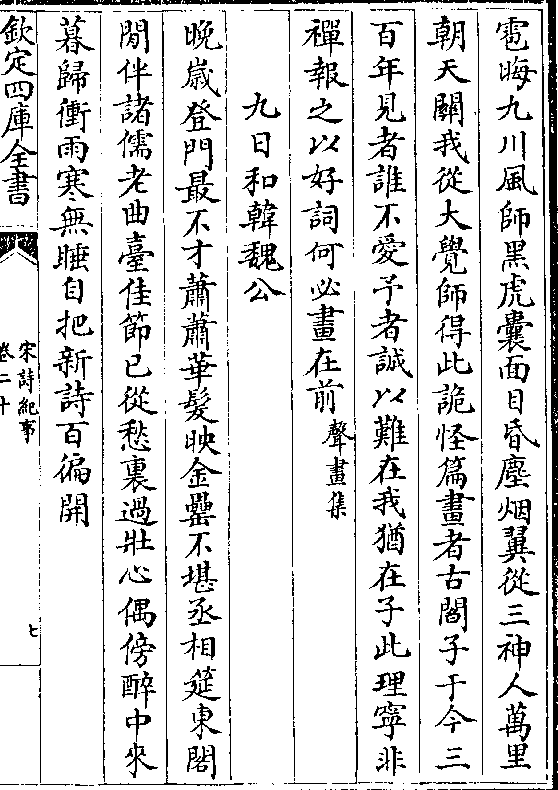 雹晦九川風師黑虎囊面目昏塵烟翼從三神人萬里
朝天關我從大覺師得此詭怪篇畫者古閻子于今三
百年見者誰不愛予者誠以難在我猶在子此理寧非
禪報之以好詞何必畫在前聲畫集
九日和韓魏公
晚歲登門最不才蕭蕭華髮映金罍不堪丞相筵東閣
閒伴諸儒老曲臺佳節已從愁裏過壯心偶傍醉中來
暮歸衝雨寒無睡自把新詩百徧開
欽定四庫全書
宋詩紀事
卷二十
七